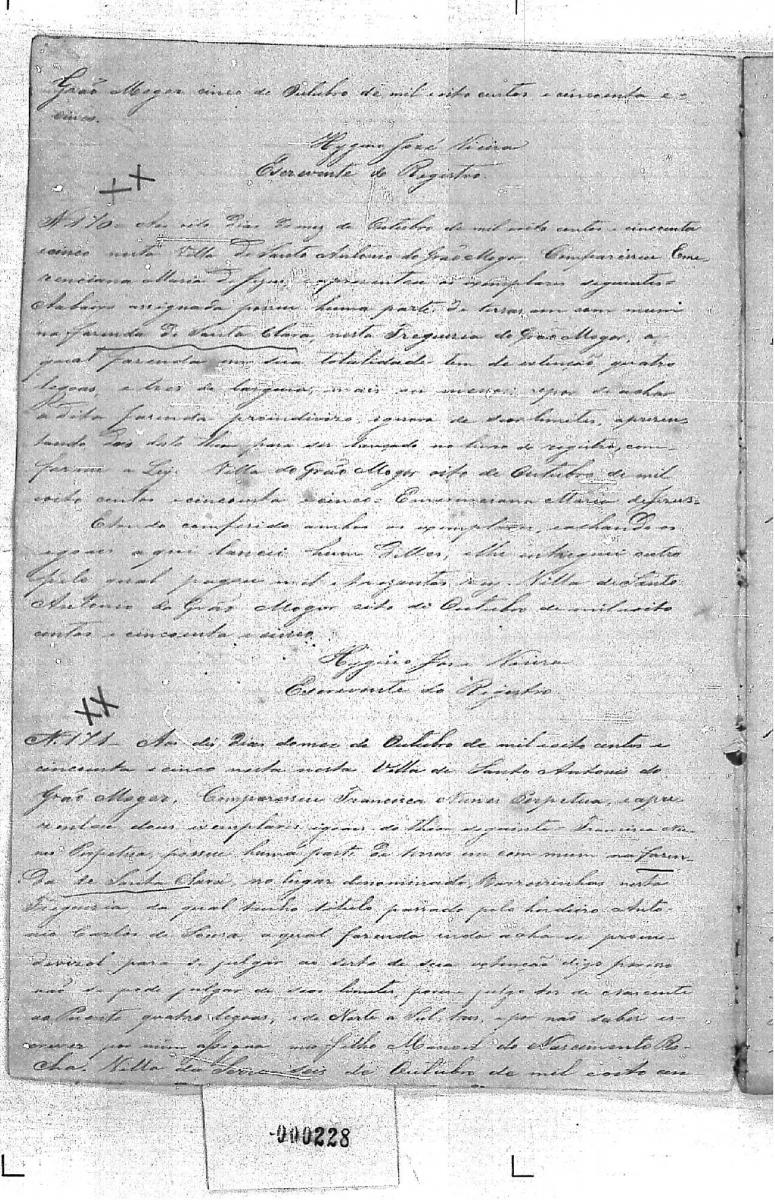 Grão Mogor cinco de Outubro de mil oito centos e cincoenta e
cinco.
Hygino José Vieira
Escrevente do Registro.
N. 170 - Aos oito dias do mez de Outubro de mil oito centos e cincoenta
e cinco nesta Villa de Santo Antonio do Grão Mogor, Compareceu Eme-
renciana Maria de Jesus, e aprezentou os exemplares seguintes =
Aabaixo assignada possue huma parte de terras em com mum
na fazenda de Santa Clara, nesta Freguezia do Grão Mogor, a
qual fazenda em sua totalidade tem de extenção quatro
legoas, e tres de largura, mais ou menos;
a dita fazenda proindivizo, de seos limites, aprezen-
tando dois deste theor para ser lançado no livro de registro, com-
forme a Ley. Villa do Grão Mogor oito de Outubro de mil
oito centos e cincoenta e cinco = Maria de Jesus =
comferido ambos os exemplares, e achando os
egoaes aqui lancei hum delles, e lhe entreguei outro
pelo qual pagou mil e trezentos reys. Villa de Santo
Antonio do Grão Mogor oito de Outubro de mil oito
centos e cincoenta e cinco.
Hygino José Vieira
Escrevente do Registro
N. 171 - Aos dés dias do mez de Outubro de mil oito centos e
cincoenta e cinco nesta nesta Villa de Santo Antonio do
Grão Mogor, Compareceu Francisca Nunes Perpetua, e apre-
zentou dous exemplares egoaes do theor seguinte = Francisca Nu-
nes Perpetua, possue huma parte de terras em com mum na fazen-
da de Santa Clara, no lugar denominado Barreirinhas nesta
Freguezia da qual tenho titulo passado pelo herdeiro Anto-
nio Carlos de Souza, a qual fazenda acha se proin-
divizo para se julgar ao serto de sua extenção digo
não se pode julgar de seos limites, porem julgo ter de Nascente
ao Puente quatro legoas, e de Norte a Sul tres, e por não saber es-
crever por mim assigna meo filho Manoel do Nascimento Ro-
cha. Villa da Serra seis de Outubro de mil e oito cen
-000228